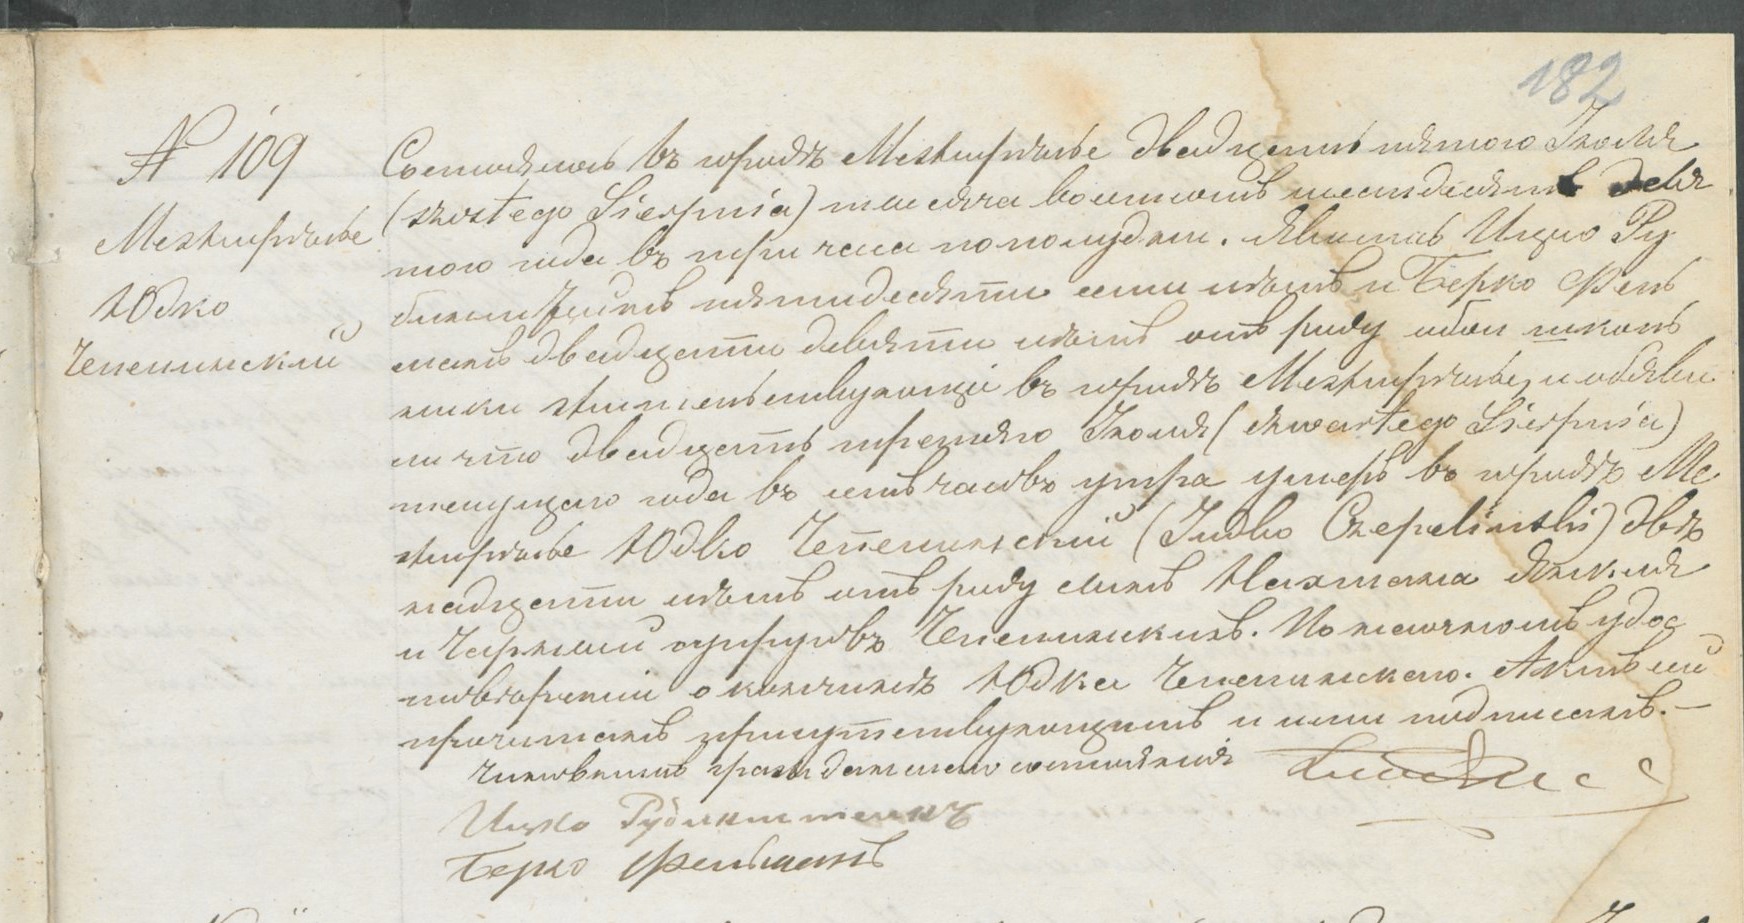 182
№ 109
Межирѣчье
Юдко
Чепелинскій
Состоялось въ городѣ Межирѣчье двадцать пятого Іюля
(szóstego Sierpnia) тысяча восемсотъ шестьдесятъ девя
того года въ три часа пополудни. Явились Ицко Ру
бинштейнъ пятидесяти семи лѣтъ и Берко Фель
манъ двадцати девяти лѣтъ отъ роду оба школь
ники жительствующіе въ городѣ Межирѣчье, и объяви
ли что двадцать третяго Іюля (czwartego Sierpnia)
текущаго года въ часовъ утра умеръ въ городѣ Ме
жирѣчье Юдко Чепелинскій (Judko Czepeliński) двѣ
надцати лѣтъ отъ роду сынъ Нахмана Янкеля
и Чарны супруговъ Чепелинскихъ. По настоячномъ удос
товѣреніи о кончинѣ Юдка Чепелинского. Актъ сей
прочитанъ присутствующимъ и ими подписанъ.—
Чиновникъ гражданскаго состоянія
Ицко Рубинштейнъ
Берко Фельманъ